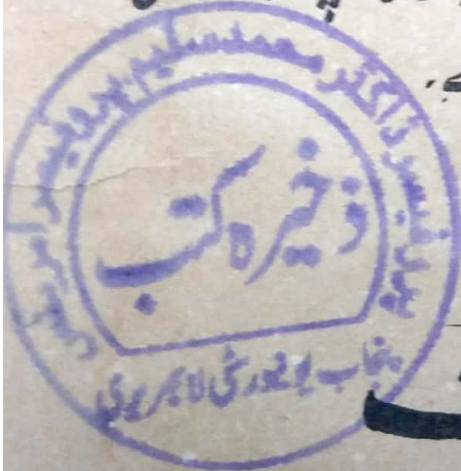 پروفیسر ڈاکٹر محمد سلیم پروفیسر
ذخیرہ کتب
پنجاب یونیورسٹی لائبریری